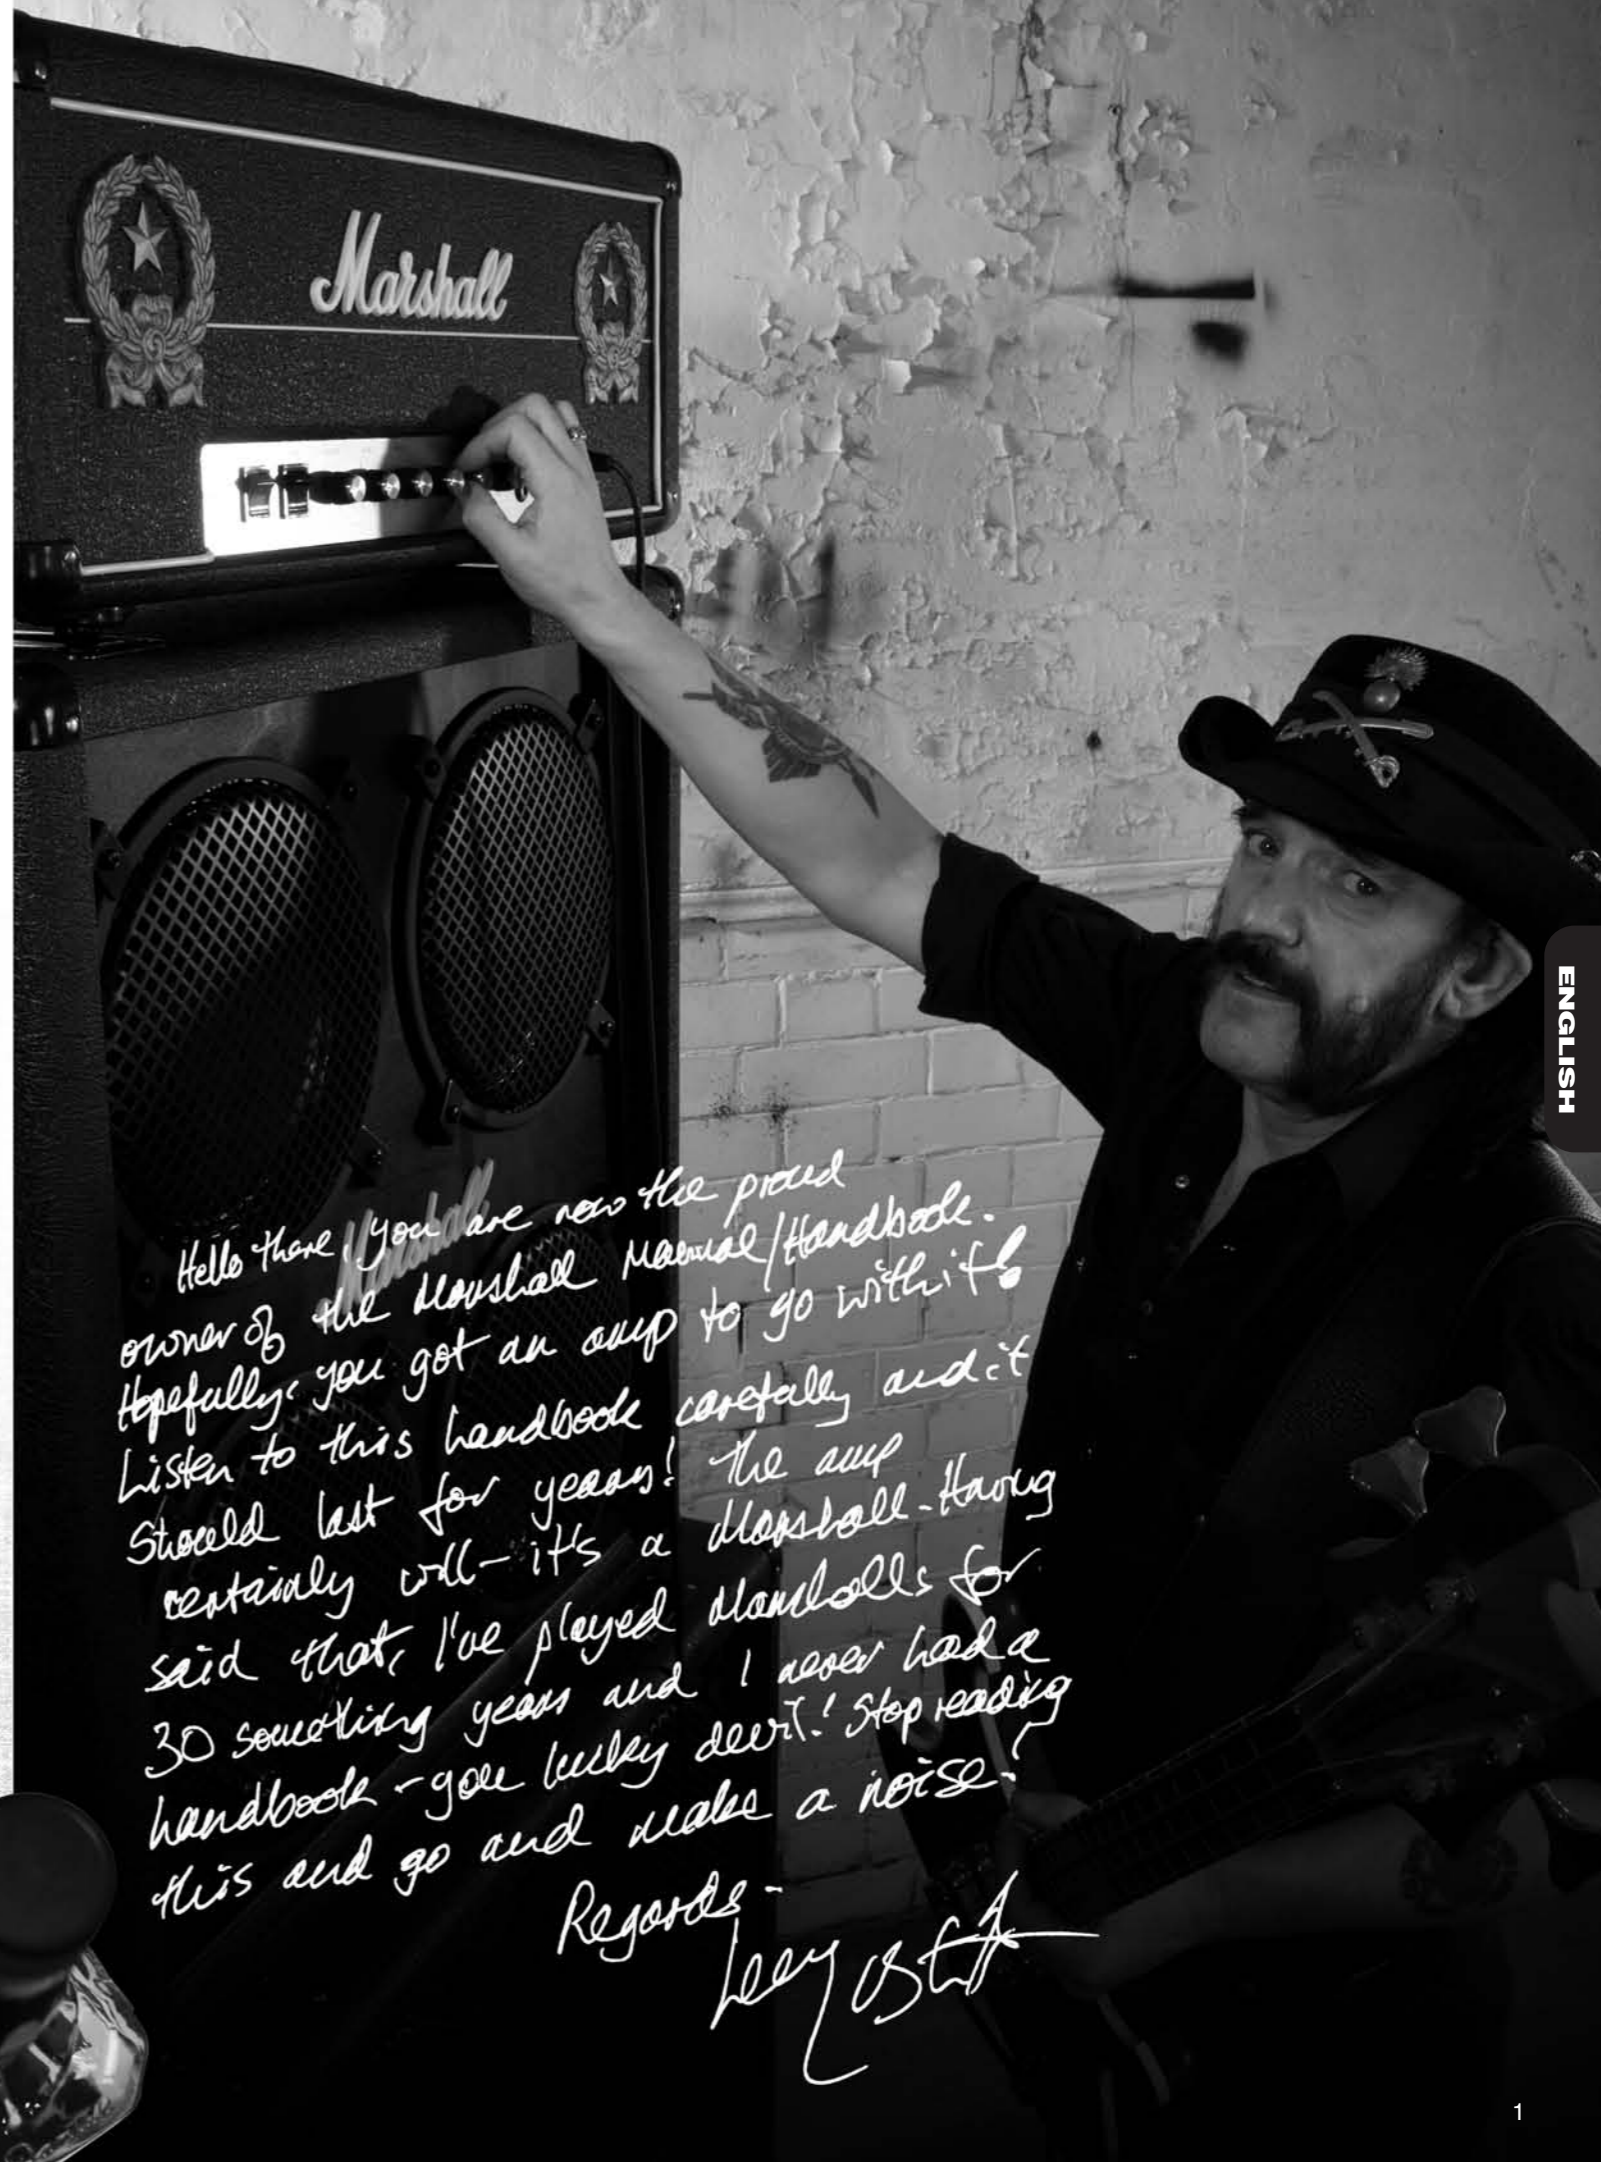 Marshall
ENGLISH
Marshall
Hello there, you are now the proud
owner of the Marshall Manual/Handbook.
Hopefully, you got an amp to go with it!
Listen to this handbook carefully and it
should last for years! The amp
certainly will - it's a Marshall - Having
said that, I've played Marshalls for
30 something years and I never had a
handbook - you lucky devil! Stop reading
this and go and make a noise!
Regards -
1